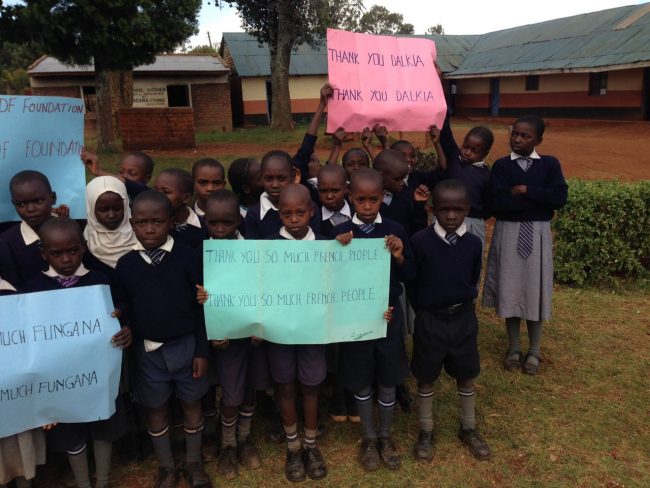 THANK YOU DALKIA
THANK YOU DALKIA
DF FOUNDATION
DF FOUNDATION
THANK YOU SO MUCH FRENCH PEOPLE
THANK YOU SO MUCH FRENCH PEOPLE
MUCH FUNGANA
MUCH FUNGANA